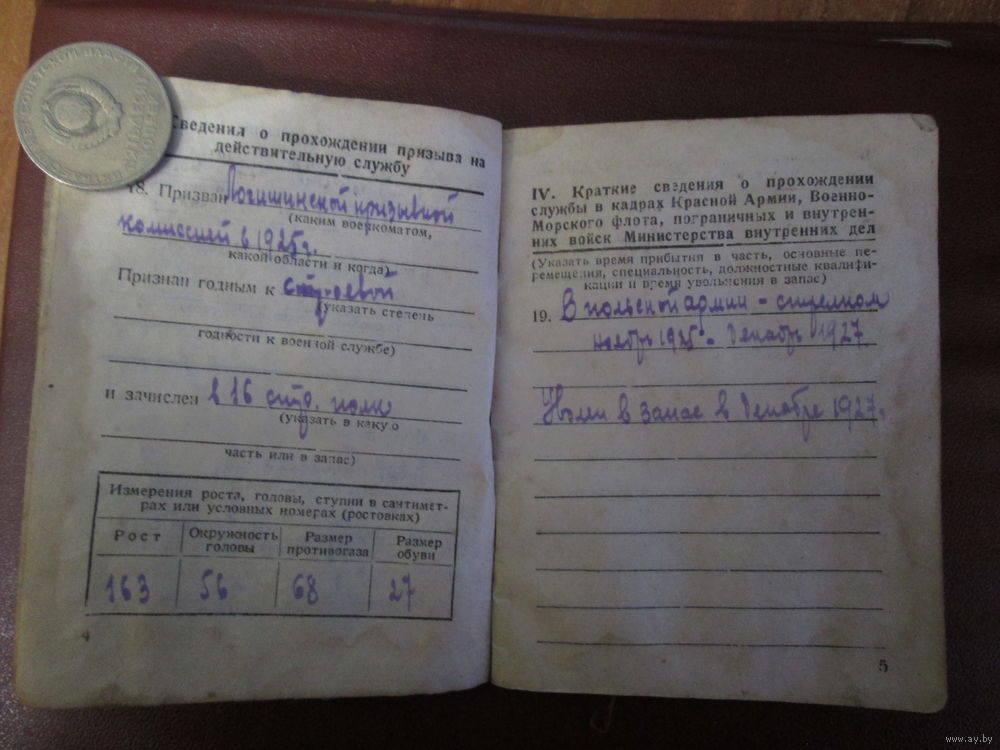 СОВЕТСКОЙ ВЛАСТИ
Сведения о прохождении призыва на
действительную службу
18. Призван Логишинской призывной
(каким военкоматом,
комиссией в 1925 г.
какой области и когда)
Признан годным к строевой
(указать степень
годности к военной службе)
и зачислен в 16 стр. полк
(указать в какую
часть или в запас)
Измерения роста, головы, ступни в сантимет-
рах или условных номерах (ростовках)
Рост Окружность головы Размер противогаза Размер обуви
163 56 68 27
4
IV. Краткие сведения о прохождении
службы в кадрах Красной Армии, Военно-
Морского флота, пограничных и внутрен-
них войск Министерства внутренних дел
(Указать время прибытия в часть, основные пе-
ремещения, специальность, должностные квалифи-
кации и время увольнения в запас)
19. В польской армии - стрелком
ноябрь 1925г. Декабрь 1927
в запас в Декабре 1927г.
5
www.ay.by